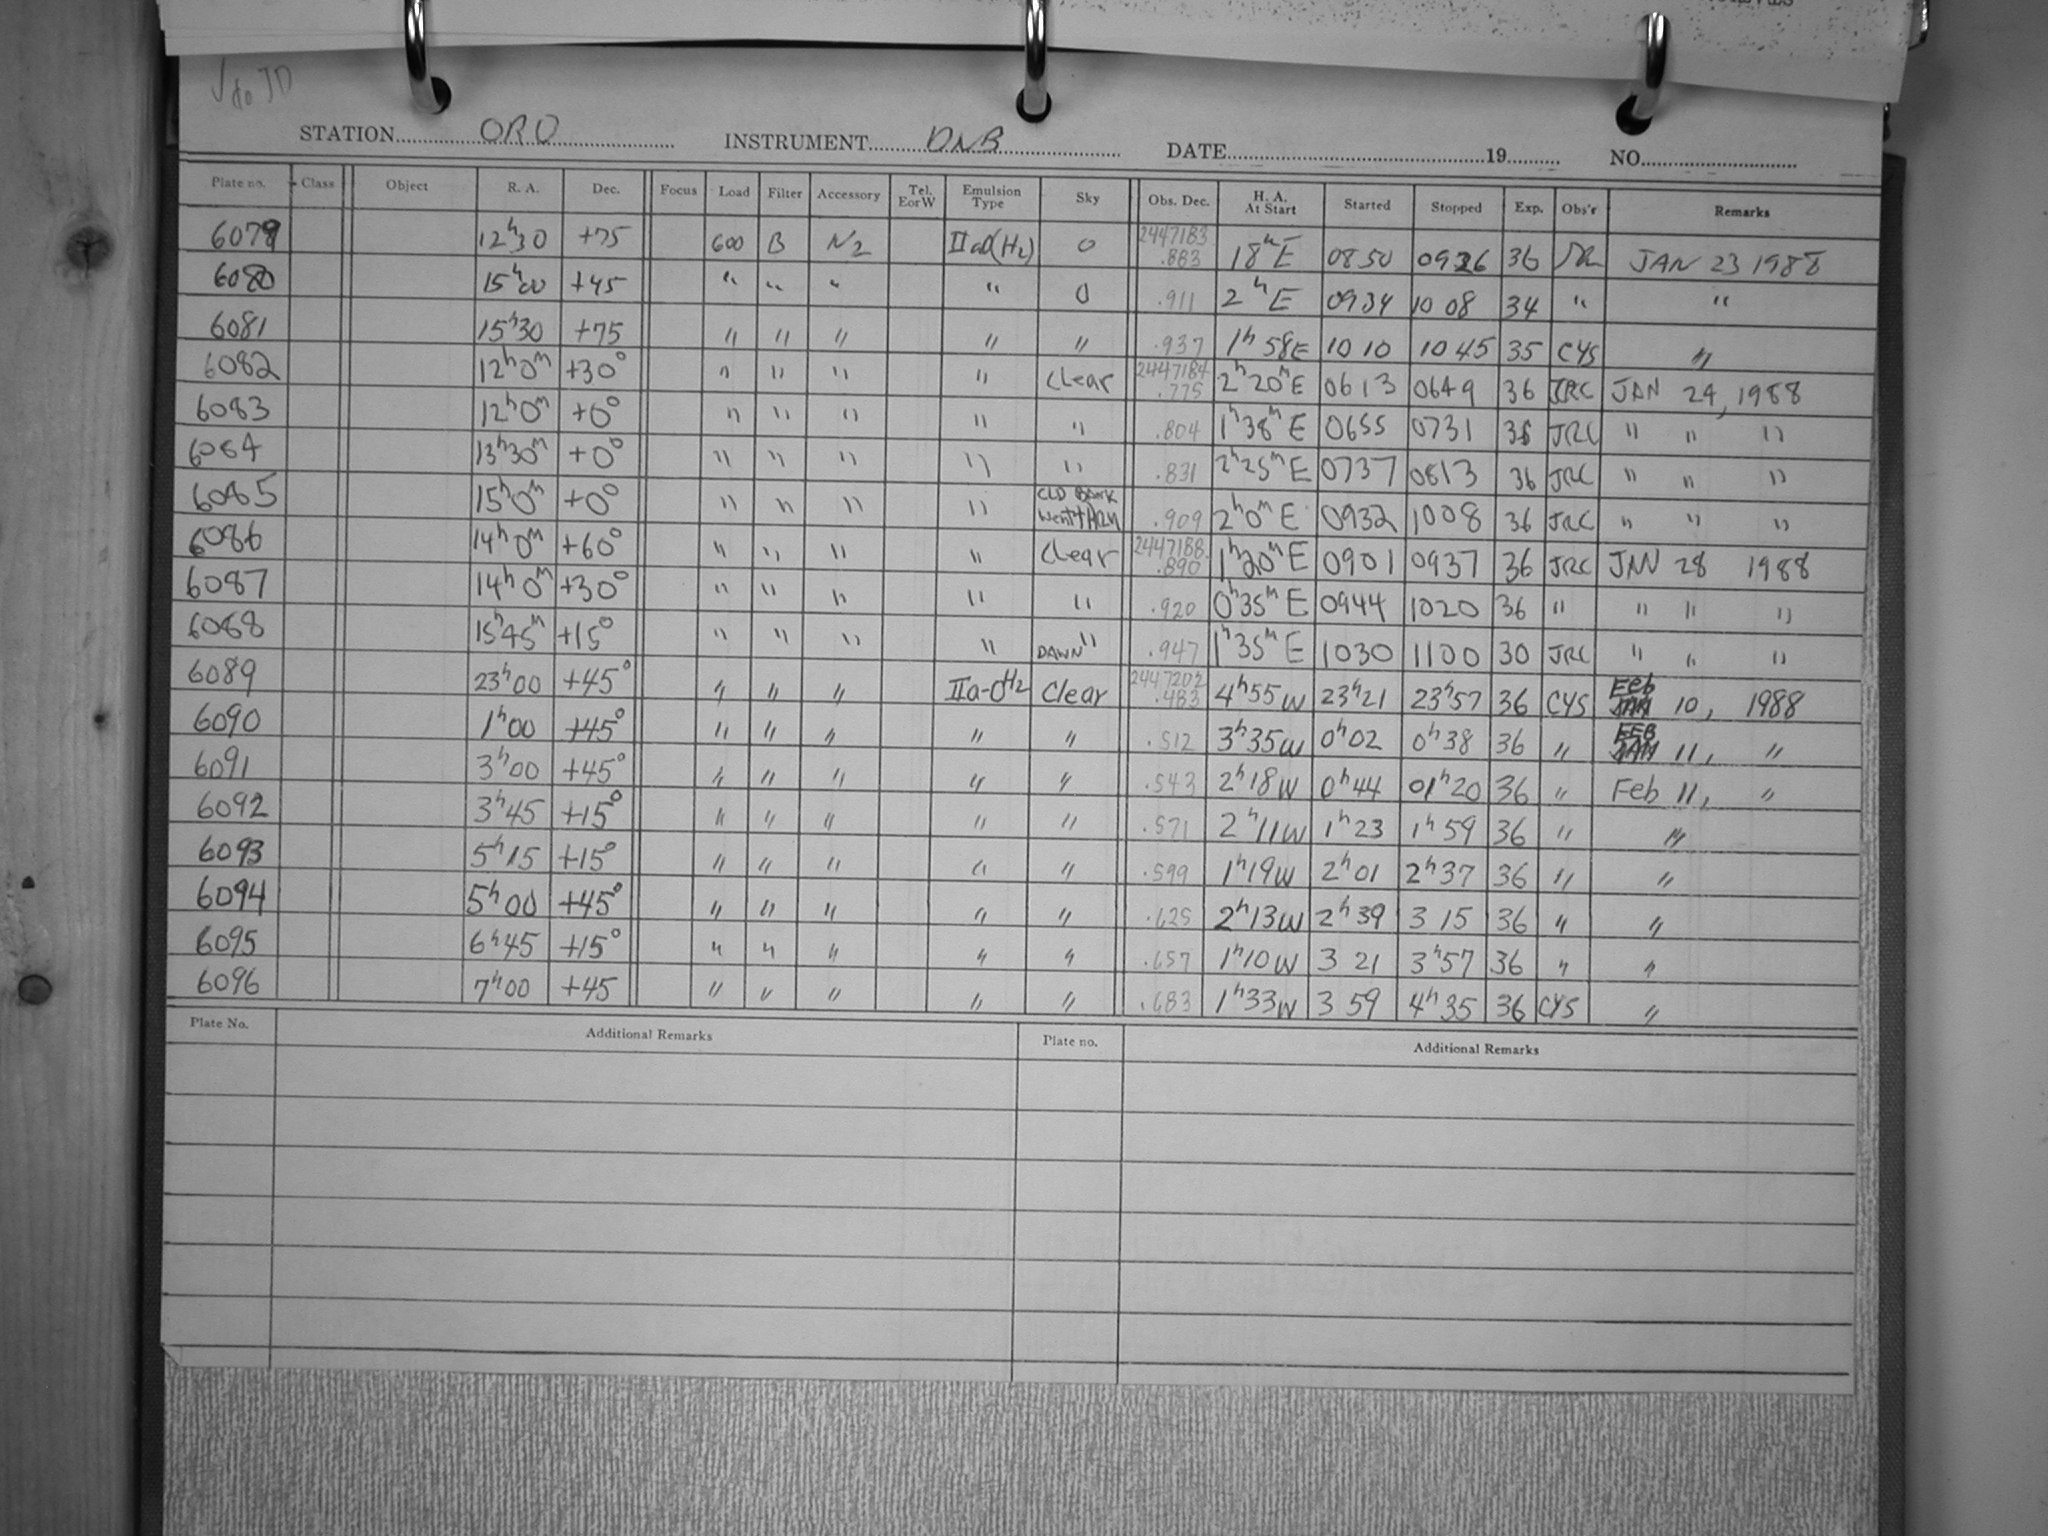 √ do JD
STATION ORO INSTRUMENT DNB DATE 19 NO.
Plate no. Class Object R. A. Dec. Focus Load Filter Accessory Tel. EorW Emulsion Type Sky Obs. Dec. H. A. At Start Started Stopped Exp. Obs'r Remarks
6079 12ʰ30 +75 600 B N2 IIaO(H2) 0 2447183 .883 18ᵐE 0850 0926 36 JAN 23 1988
6080 15ʰ00 +45 " " " " 0 .911 2ʰE 0934 10 08 34 " "
6081 15ʰ30 +75 " " " " " .937 1ʰ58E 10 10 10 45 35 CYS "
6082 12ʰ0ᵐ +30° " " " " Clear 2447184 .775 2ʰ20ᵐE 0613 0649 36 JRC JAN 24, 1988
6083 12ʰ0ᵐ +0° " " " " " .804 1ʰ38ᵐE 0655 0731 36 JRC " " "
6084 13ʰ30ᵐ +0° " " " " " .831 2ʰ25ᵐE 0737 0813 36 JRC " " "
6085 15ʰ0ᵐ +0° " " " " CLD BANK went THRU .909 2ʰ0ᵐE 0932 1008 36 JRC " " "
6086 14ʰ0ᵐ +60° " " " " Clear 2447188 .890 1ʰ20ᵐE 0901 0937 36 JRC JAN 28 1988
6087 14ʰ0ᵐ +30° " " " " " .920 0ʰ35ᵐE 0944 1020 36 " " " "
6088 15ʰ45ᵐ +15° " " " " DAWN " .947 1ʰ35ᵐE 1030 1100 30 JRC " " "
6089 23ʰ00 +45° " " " IIa-O H2 Clear 2447202 .483 4ʰ55W 23ʰ21 23ʰ57 36 CYS Feb JAN 10, 1988
6090 1ʰ00 +45° " " " " " .512 3ʰ35W 0ʰ02 0ʰ38 36 " FEB JAN 11, "
6091 3ʰ00 +45° " " " " " .543 2ʰ18W 0ʰ44 01ʰ20 36 " Feb 11, "
6092 3ʰ45 +15° " " " " " .571 2ʰ11W 1ʰ23 1ʰ59 36 " "
6093 5ʰ15 +15° " " " " " .599 1ʰ19W 2ʰ01 2ʰ37 36 " "
6094 5ʰ00 +45° " " " " " .625 2ʰ13W 2ʰ39 3 15 36 " "
6095 6ʰ45 +15° " " " " " .657 1ʰ10W 3 21 3ʰ57 36 " "
6096 7ʰ00 +45 " " " " " .683 1ʰ33W 3 59 4ʰ35 36 CYS "
Plate No. Additional Remarks Plate no. Additional Remarks